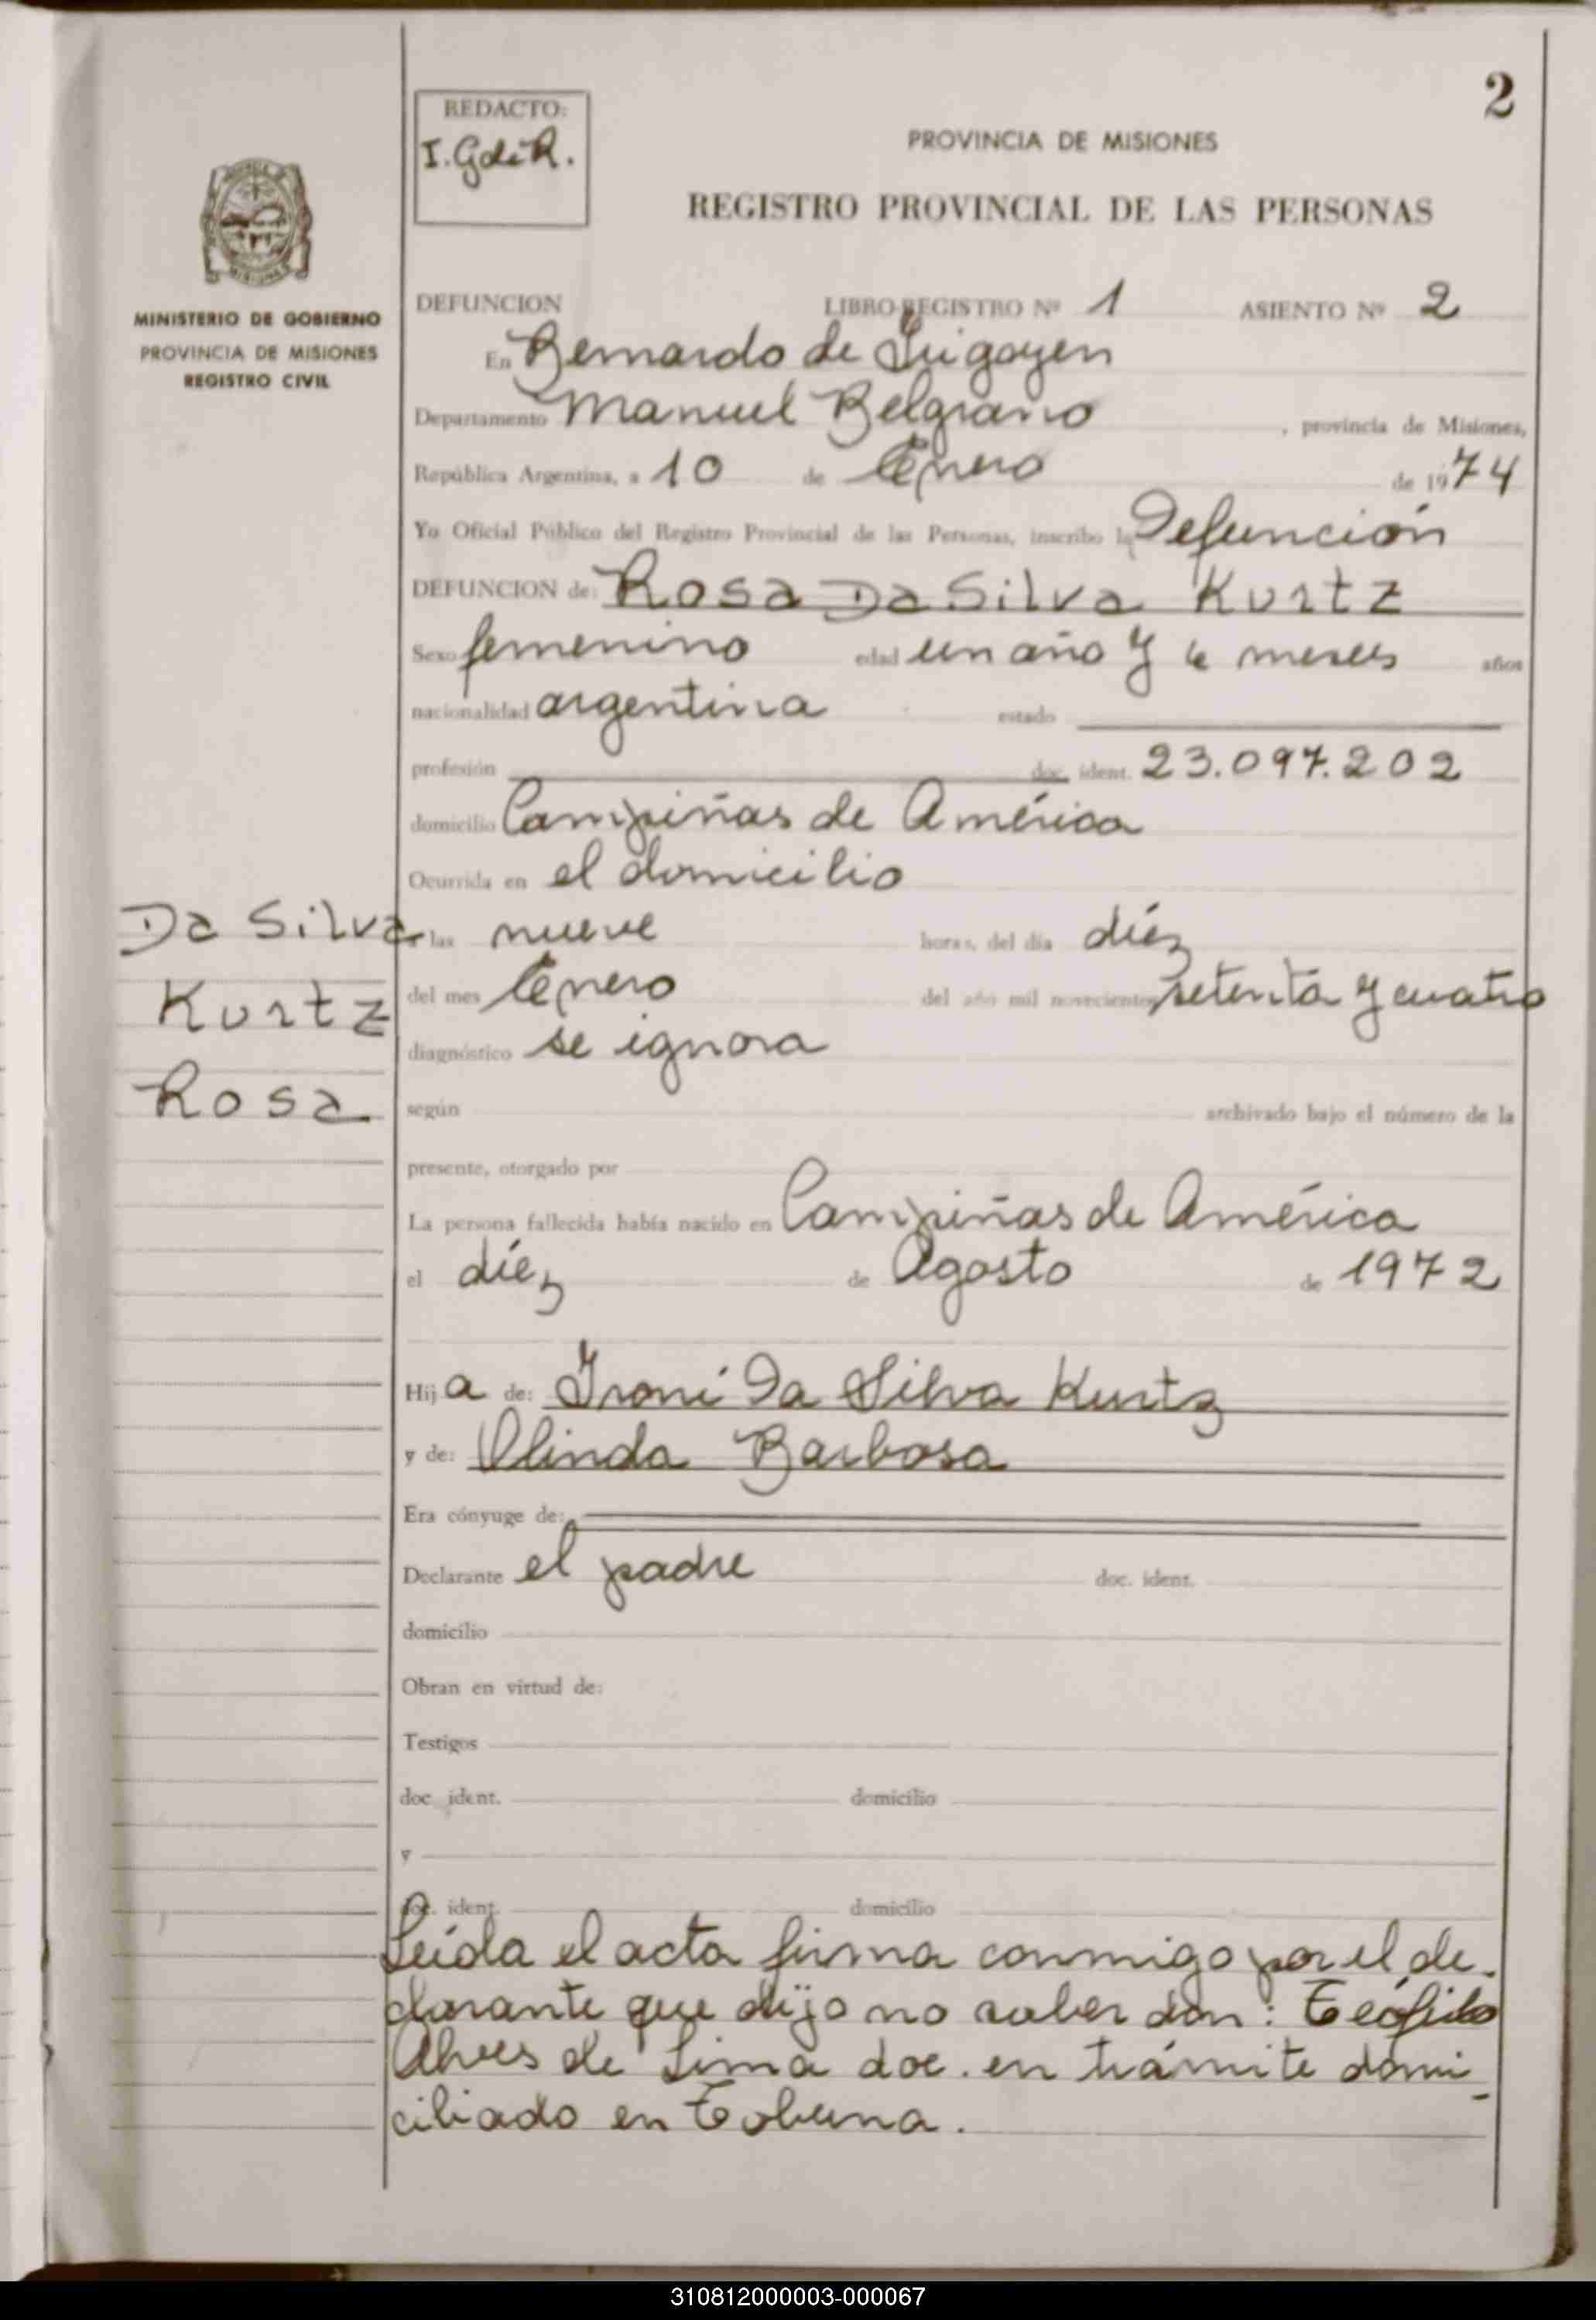 2
REDACTO:
I. G de R.
PROVINCIA DE MISIONES
REGISTRO PROVINCIAL DE LAS PERSONAS
MINISTERIO DE GOBIERNO
PROVINCIA DE MISIONES
REGISTRO CIVIL
DEFUNCION LIBRO REGISTRO Nº 1 ASIENTO Nº 2
En Bernardo de Irigoyen
Departamento Manuel Belgrano , provincia de Misiones,
República Argentina, a 10 de Enero de 1974
Yo Oficial Público del Registro Provincial de las Personas, inscribo la Defunción
DEFUNCION de: Rosa Da Silva Kurtz
Sexo femenino edad un año y 4 meses años
nacionalidad argentina estado
profesión doc. ident. 23.097.202
domicilio Campiñas de América
Ocurrida en el domicilio
Da Silva
Kurtz
Rosa
a las nueve horas, del día diéz
del mes Enero del año mil novecientos setenta y cuatro
diagnóstico se ignora
según archivado bajo el número de la
presente, otorgado por
La persona fallecida había nacido en Campiñas de América
el diéz de Agosto de 1972
Hija de: Ironí Da Silva Kurtz
y de: Olinda Barbosa
Era cónyuge de:
Declarante el padre doc. ident.
domicilio
Obran en virtud de:
Testigos
doc. ident. domicilio
y
doc. ident. domicilio
Leída el acta firma conmigo por el de-
clarante que dijo no saber don: Teófilo
Alves de Lima doc. en trámite domi-
ciliado en Tobuna.
310812000003-000067